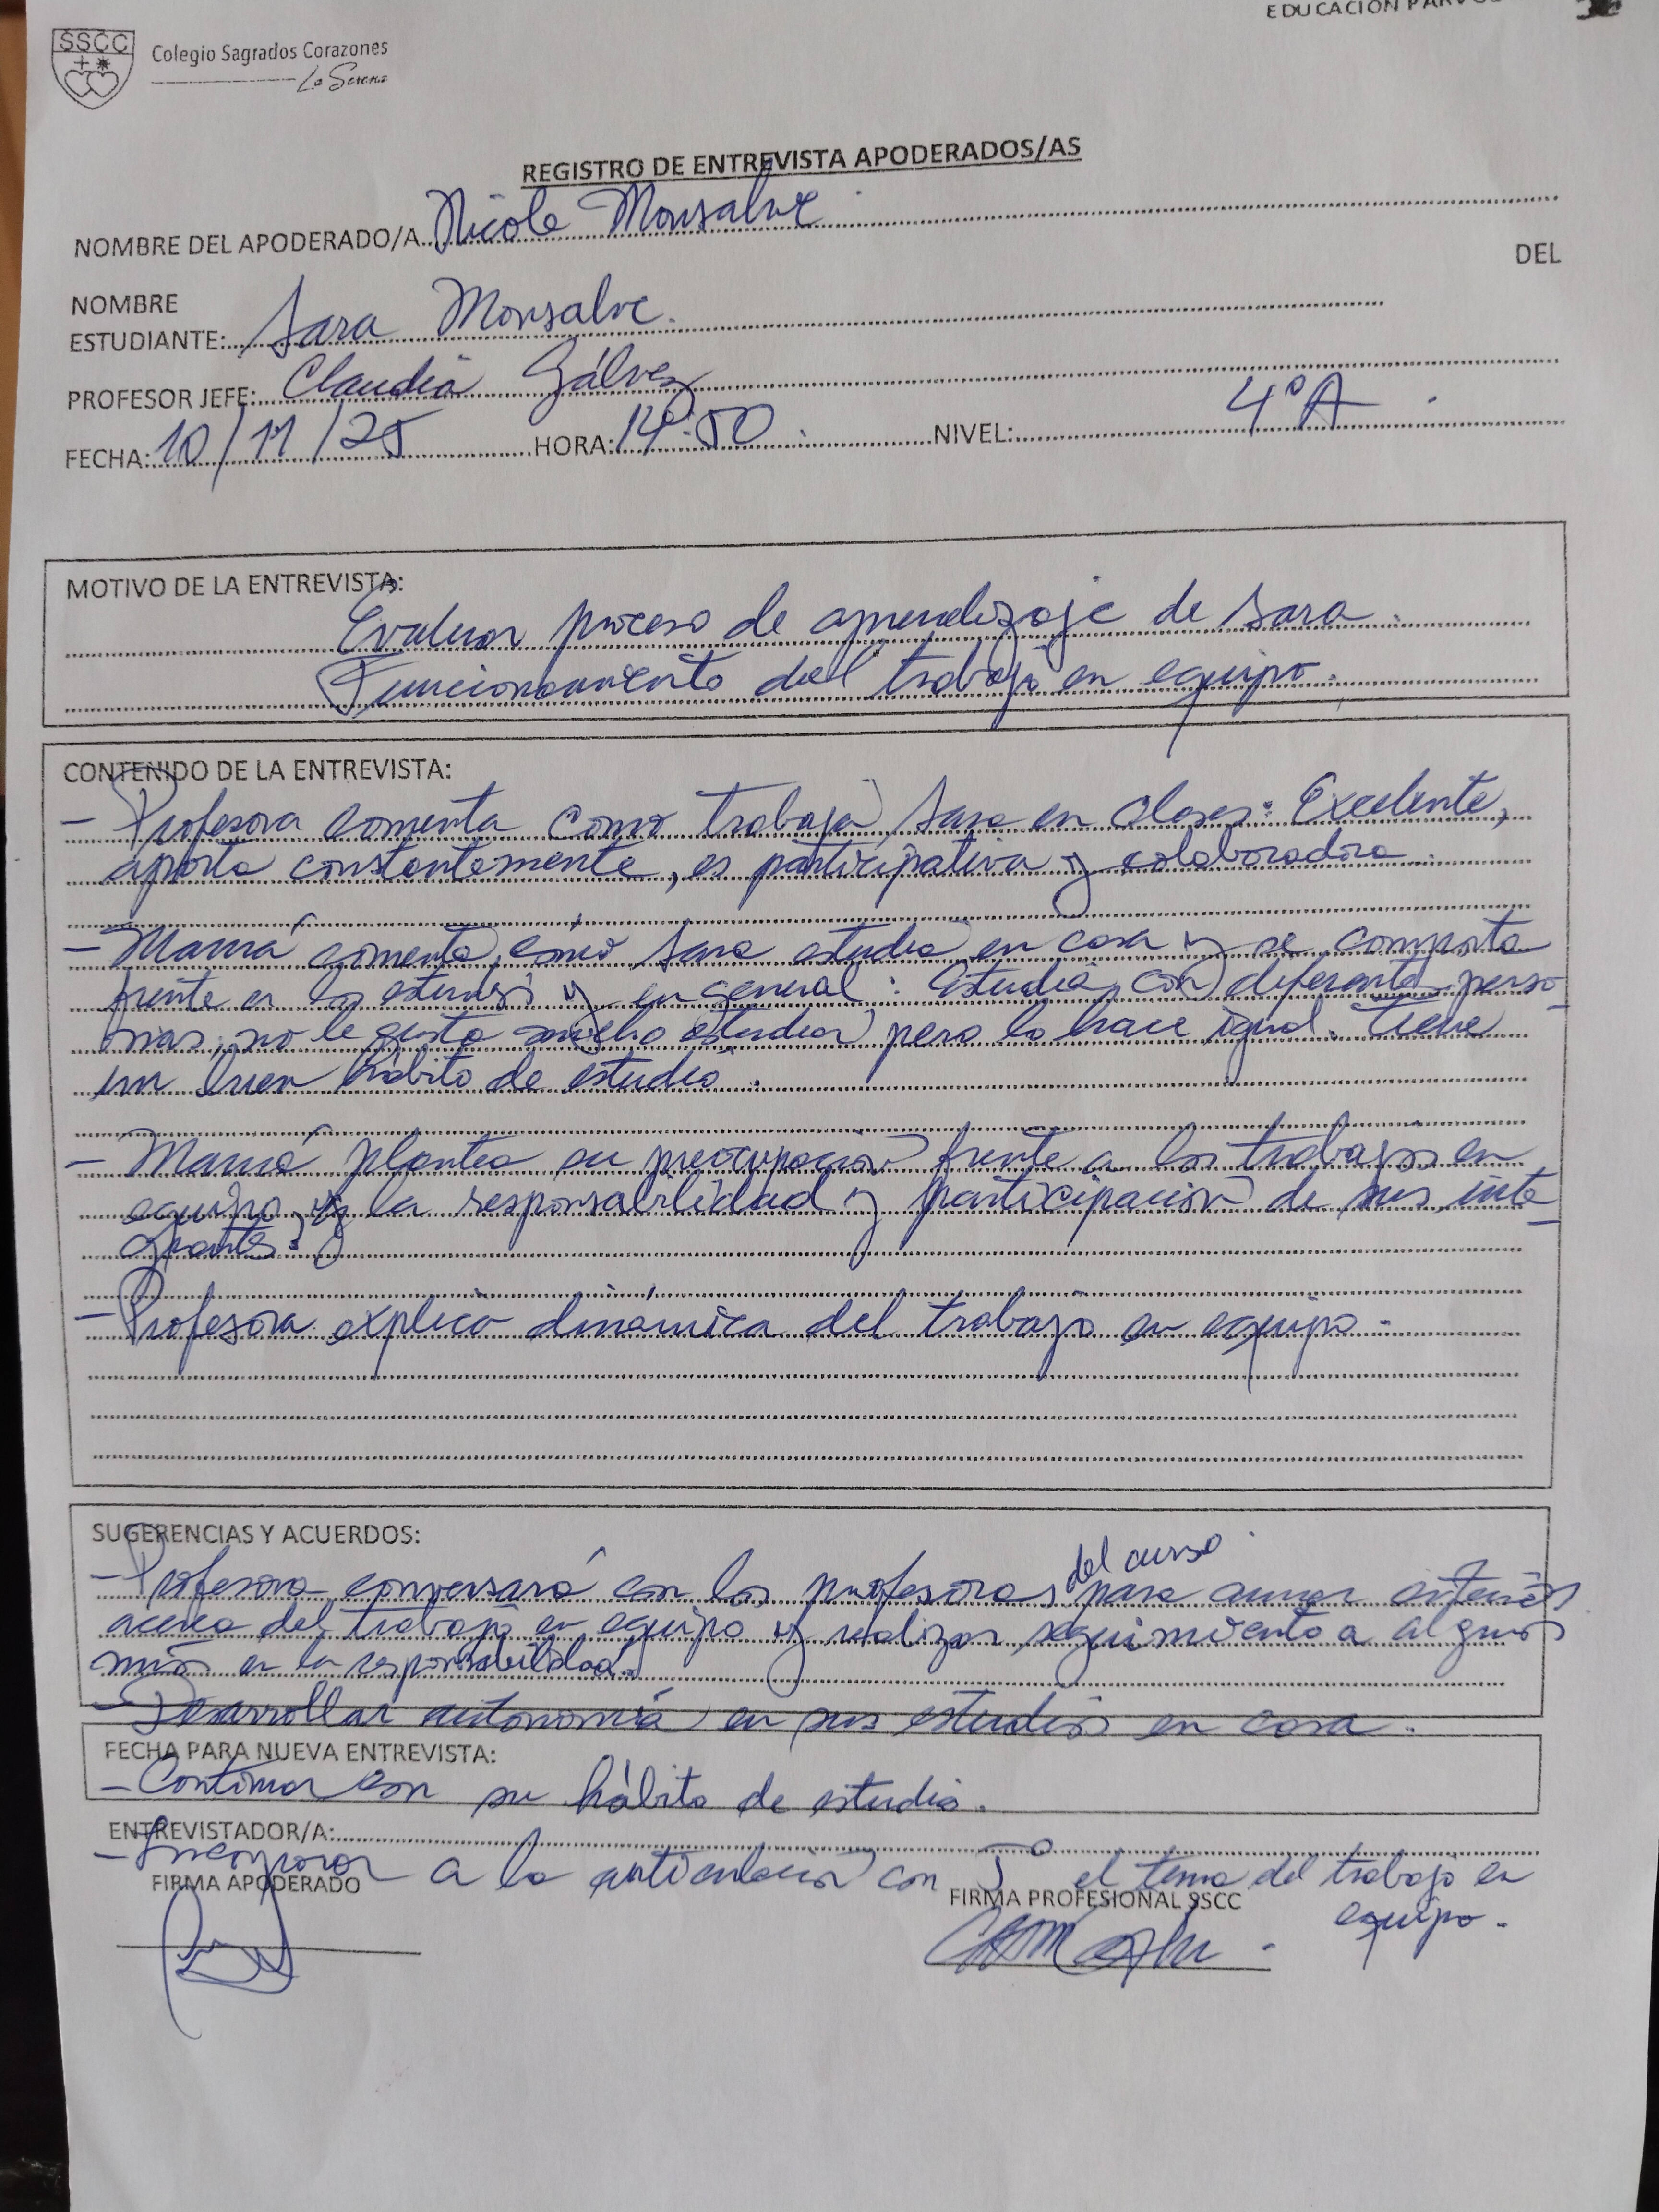 EDUCACIÓN PARVU
SSCC
Colegio Sagrados Corazones
La Serena
REGISTRO DE ENTREVISTA APODERADOS/AS
NOMBRE DEL APODERADO/A Nicole Monsalve
DEL
NOMBRE
ESTUDIANTE: Sara Monsalve.
PROFESOR JEFE: Claudia Gálvez
FECHA: 10/11/25 HORA: 14:50 NIVEL: 4°A
MOTIVO DE LA ENTREVISTA:
Evaluar proceso de aprendizaje de Sara.
Funcionamiento del trabajo en equipo.
CONTENIDO DE LA ENTREVISTA:
- Profesora comenta como trabaja Sara en clases: Excelente,
aporta constantemente, es participativa y colaboradora.
- Mamá comenta cómo Sara estudia en casa y se comporta
frente a los estudios y en general: Estudia con diferentes perso-
nas, no le gusta mucho estudiar pero lo hace igual. Tiene
un buen hábito de estudio.
- Mamá plantea su preocupación frente a los trabajos en
equipo, la responsabilidad y participación de sus inte-
grantes.
- Profesora explica dinámica del trabajo en equipo.
SUGERENCIAS Y ACUERDOS:
del curso
- Profesora conversará con los profesores para aunar criterios
acerca del trabajo en equipo y realizar seguimiento a algunos
más en la responsabilidad.
- Desarrollar autonomía en sus estudios en casa.
FECHA PARA NUEVA ENTREVISTA:
- Continuar con su hábito de estudio.
ENTREVISTADOR/A:
- Incorporar a la articulación con 5° el tema del trabajo en
equipo.
FIRMA APODERADO FIRMA PROFESIONAL SSCC